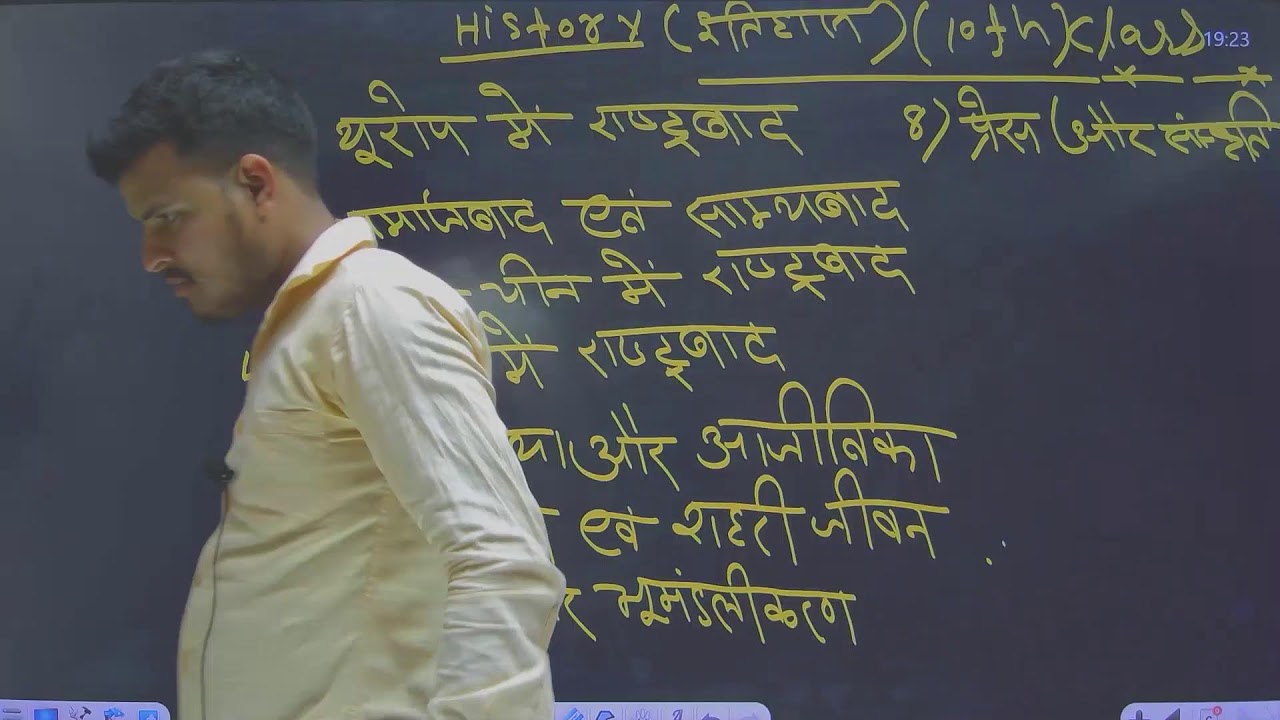 History (इतिहास) (10th) Class
19:23
यूरोप में राष्ट्रवाद
8) प्रेस और संस्कृति
समाजवाद एवं साम्यवाद
चीन में राष्ट्रवाद
में राष्ट्रवाद
और आजीविका
एवं शहरी जीवन
भूमंडलीकरण